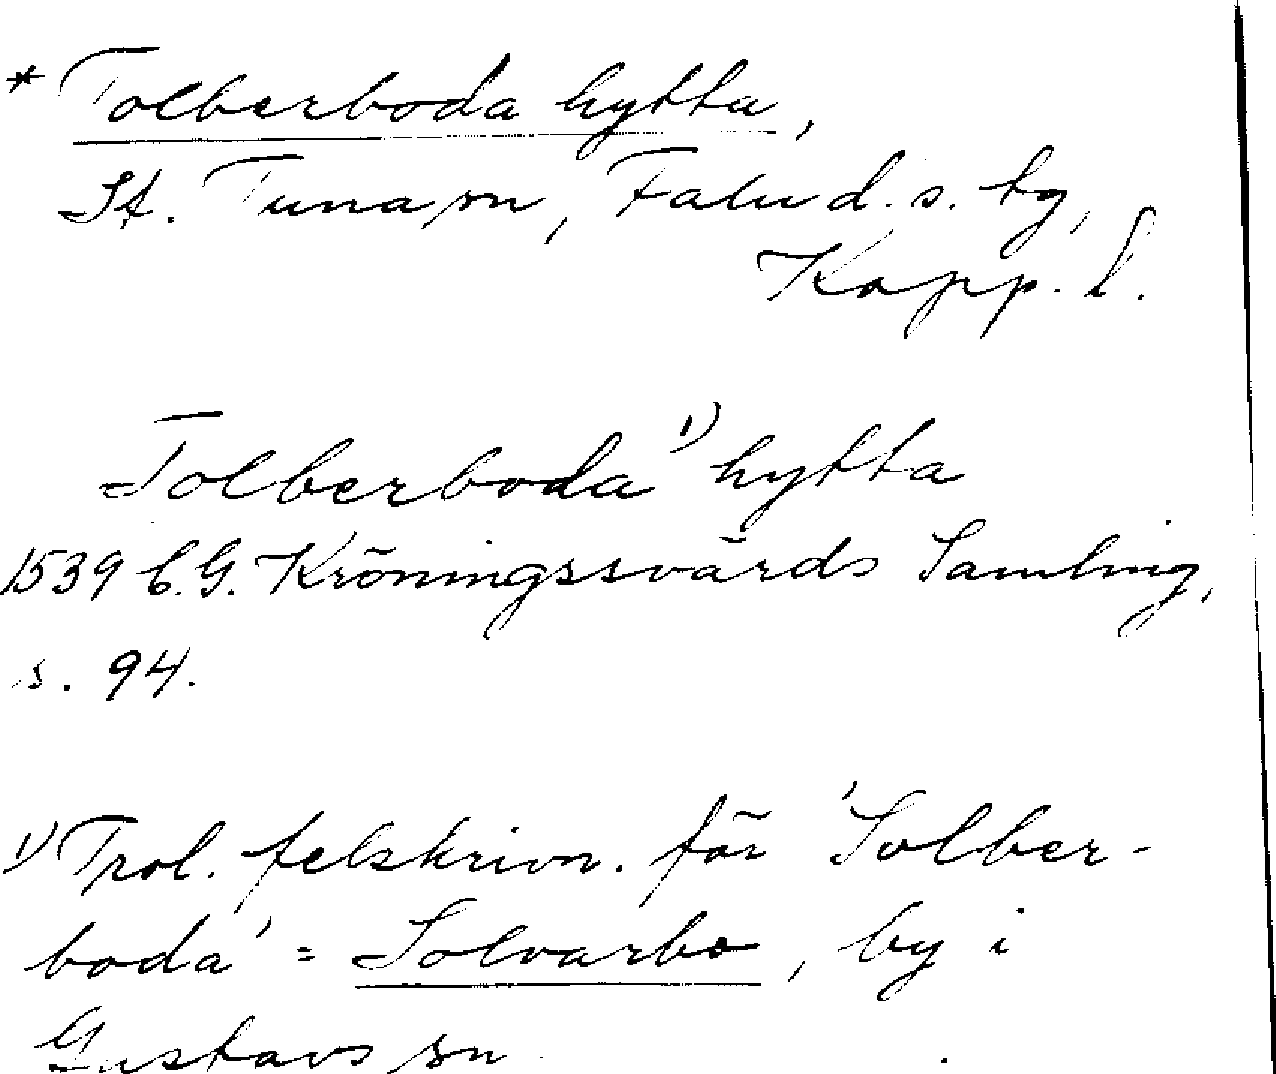 * Tolberboda hytta,
St. Tuna sn, Falu d. s. bg,
Kopp. l.
Tolberboda 1) hytta
1539 C. G. Kröningssvärds Samling,
s. 94.
1) Trol. felskrivn. för 'Solber-
boda' = Solvarbo, by i
Gustavs sn